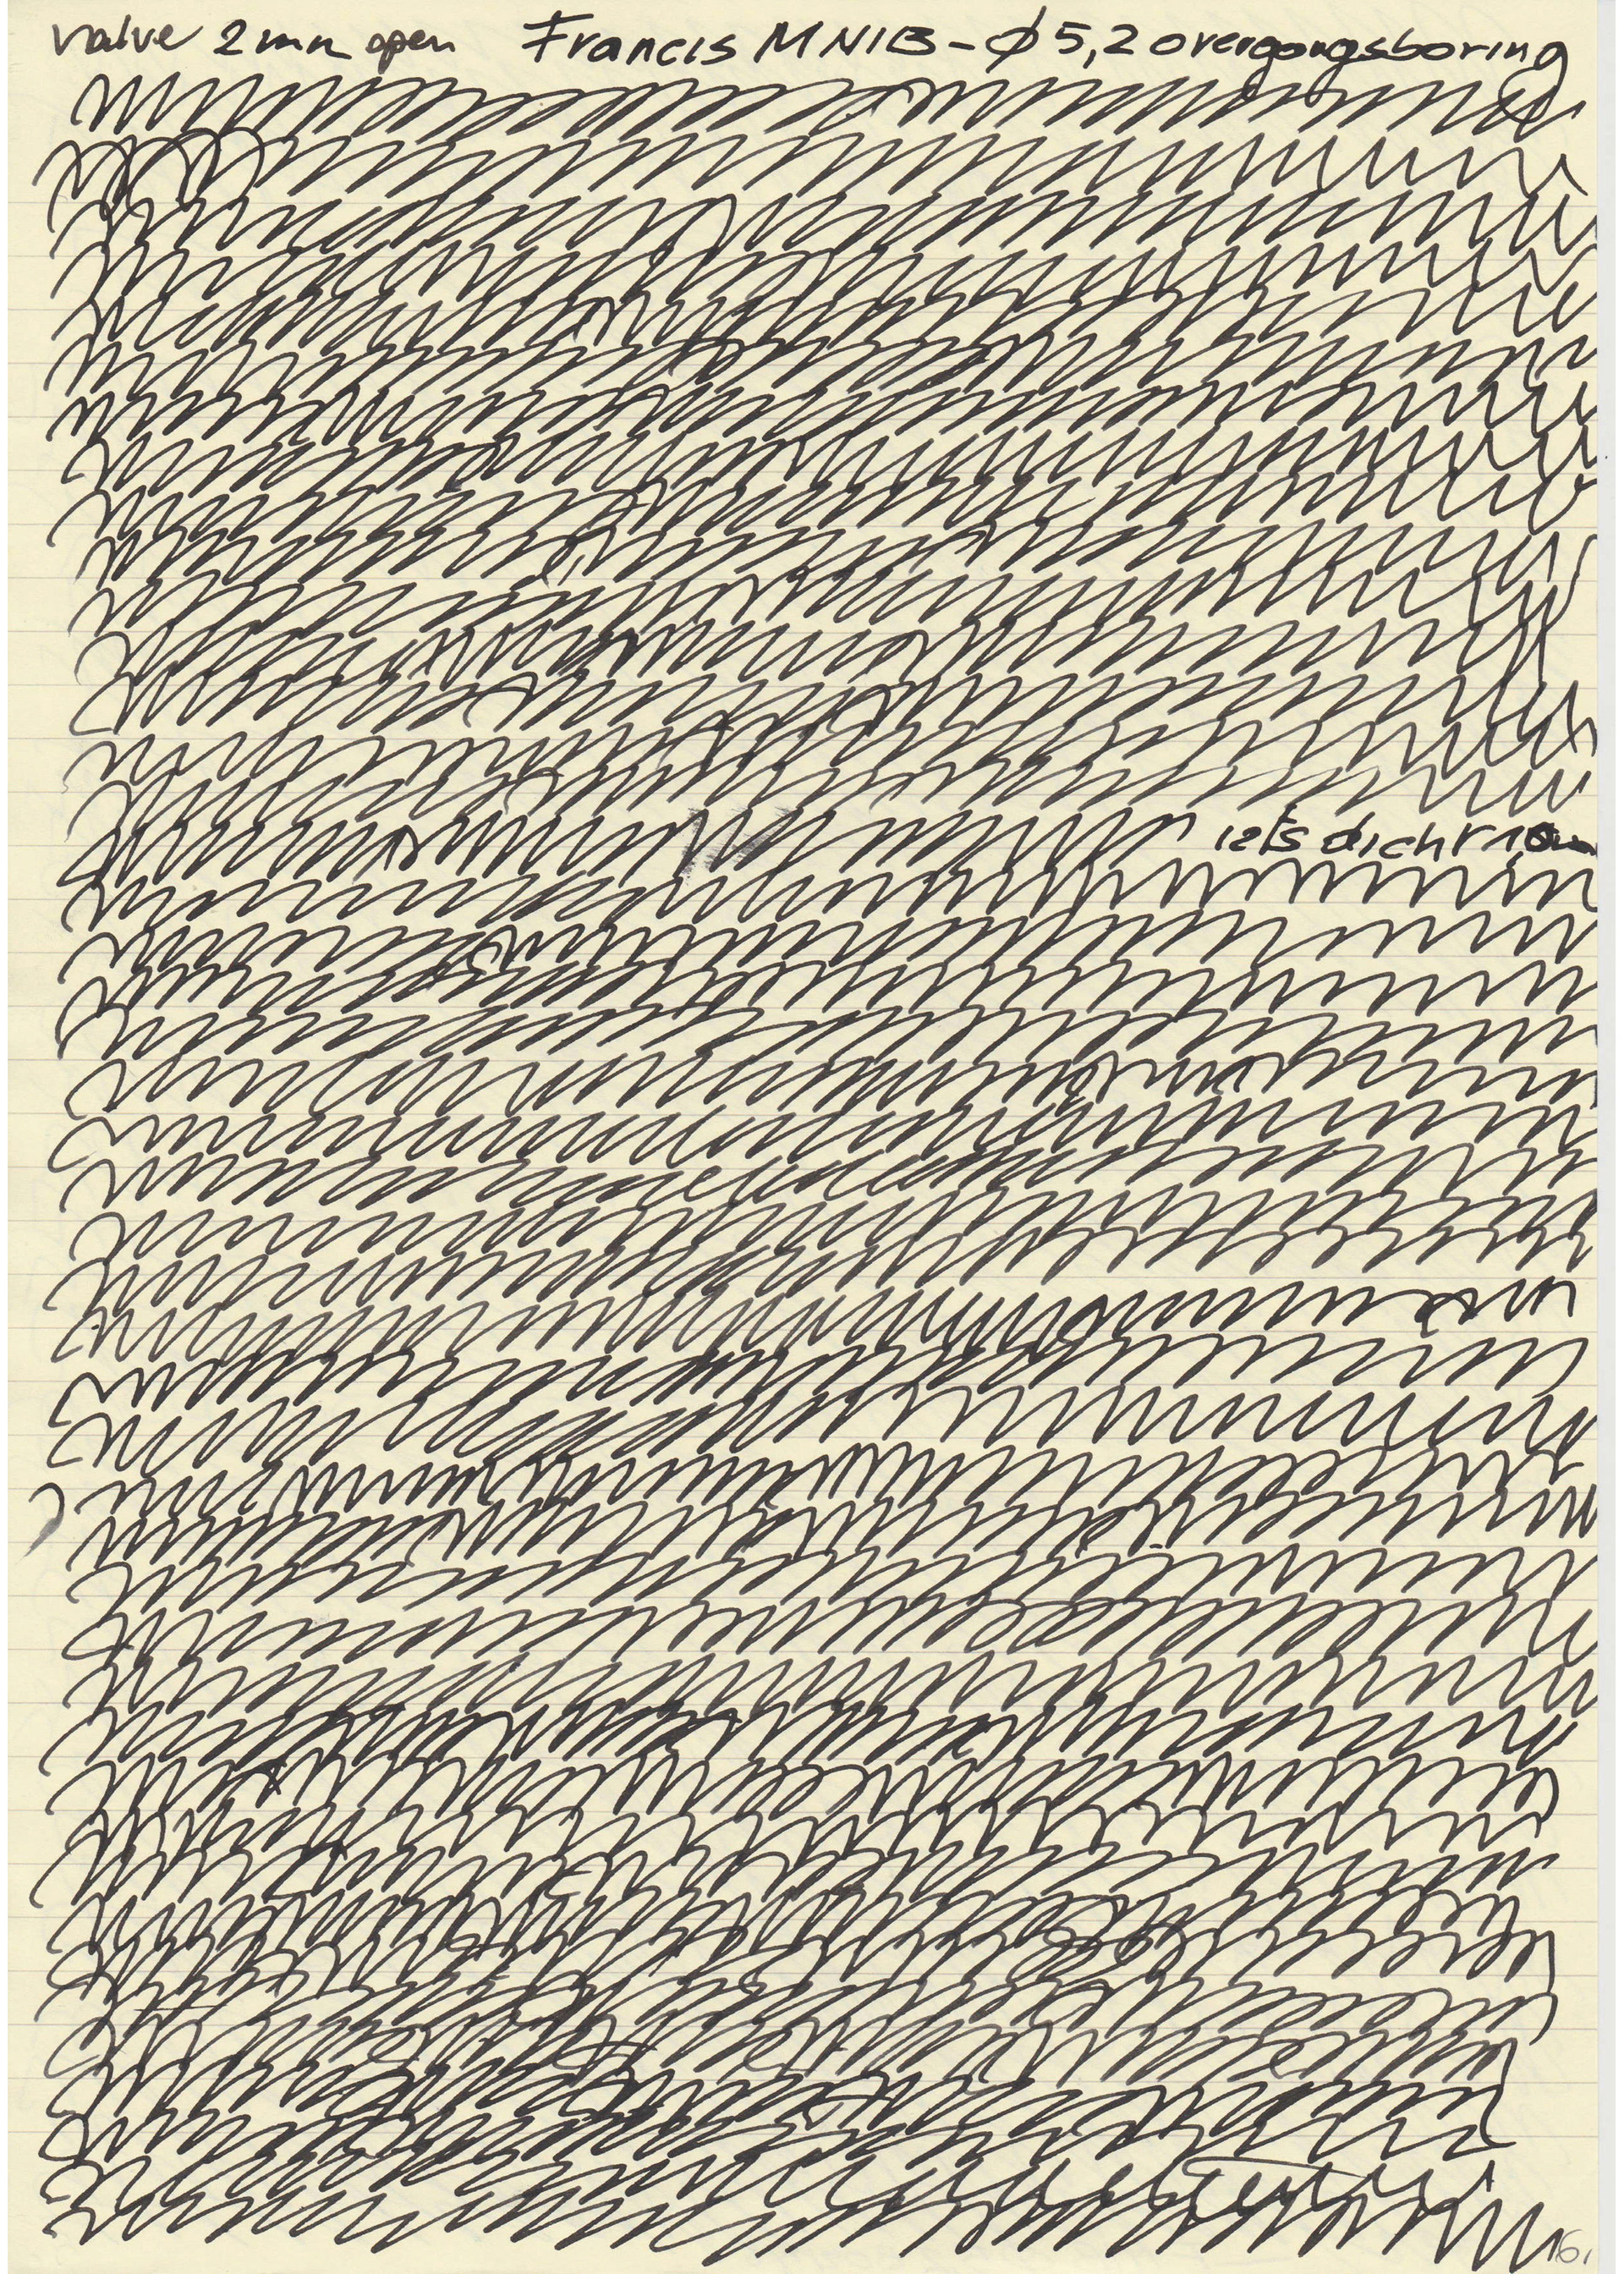 valve 2mm open Francis MNIB - Ø 5,2 overgangsboring
iets dicht
16.